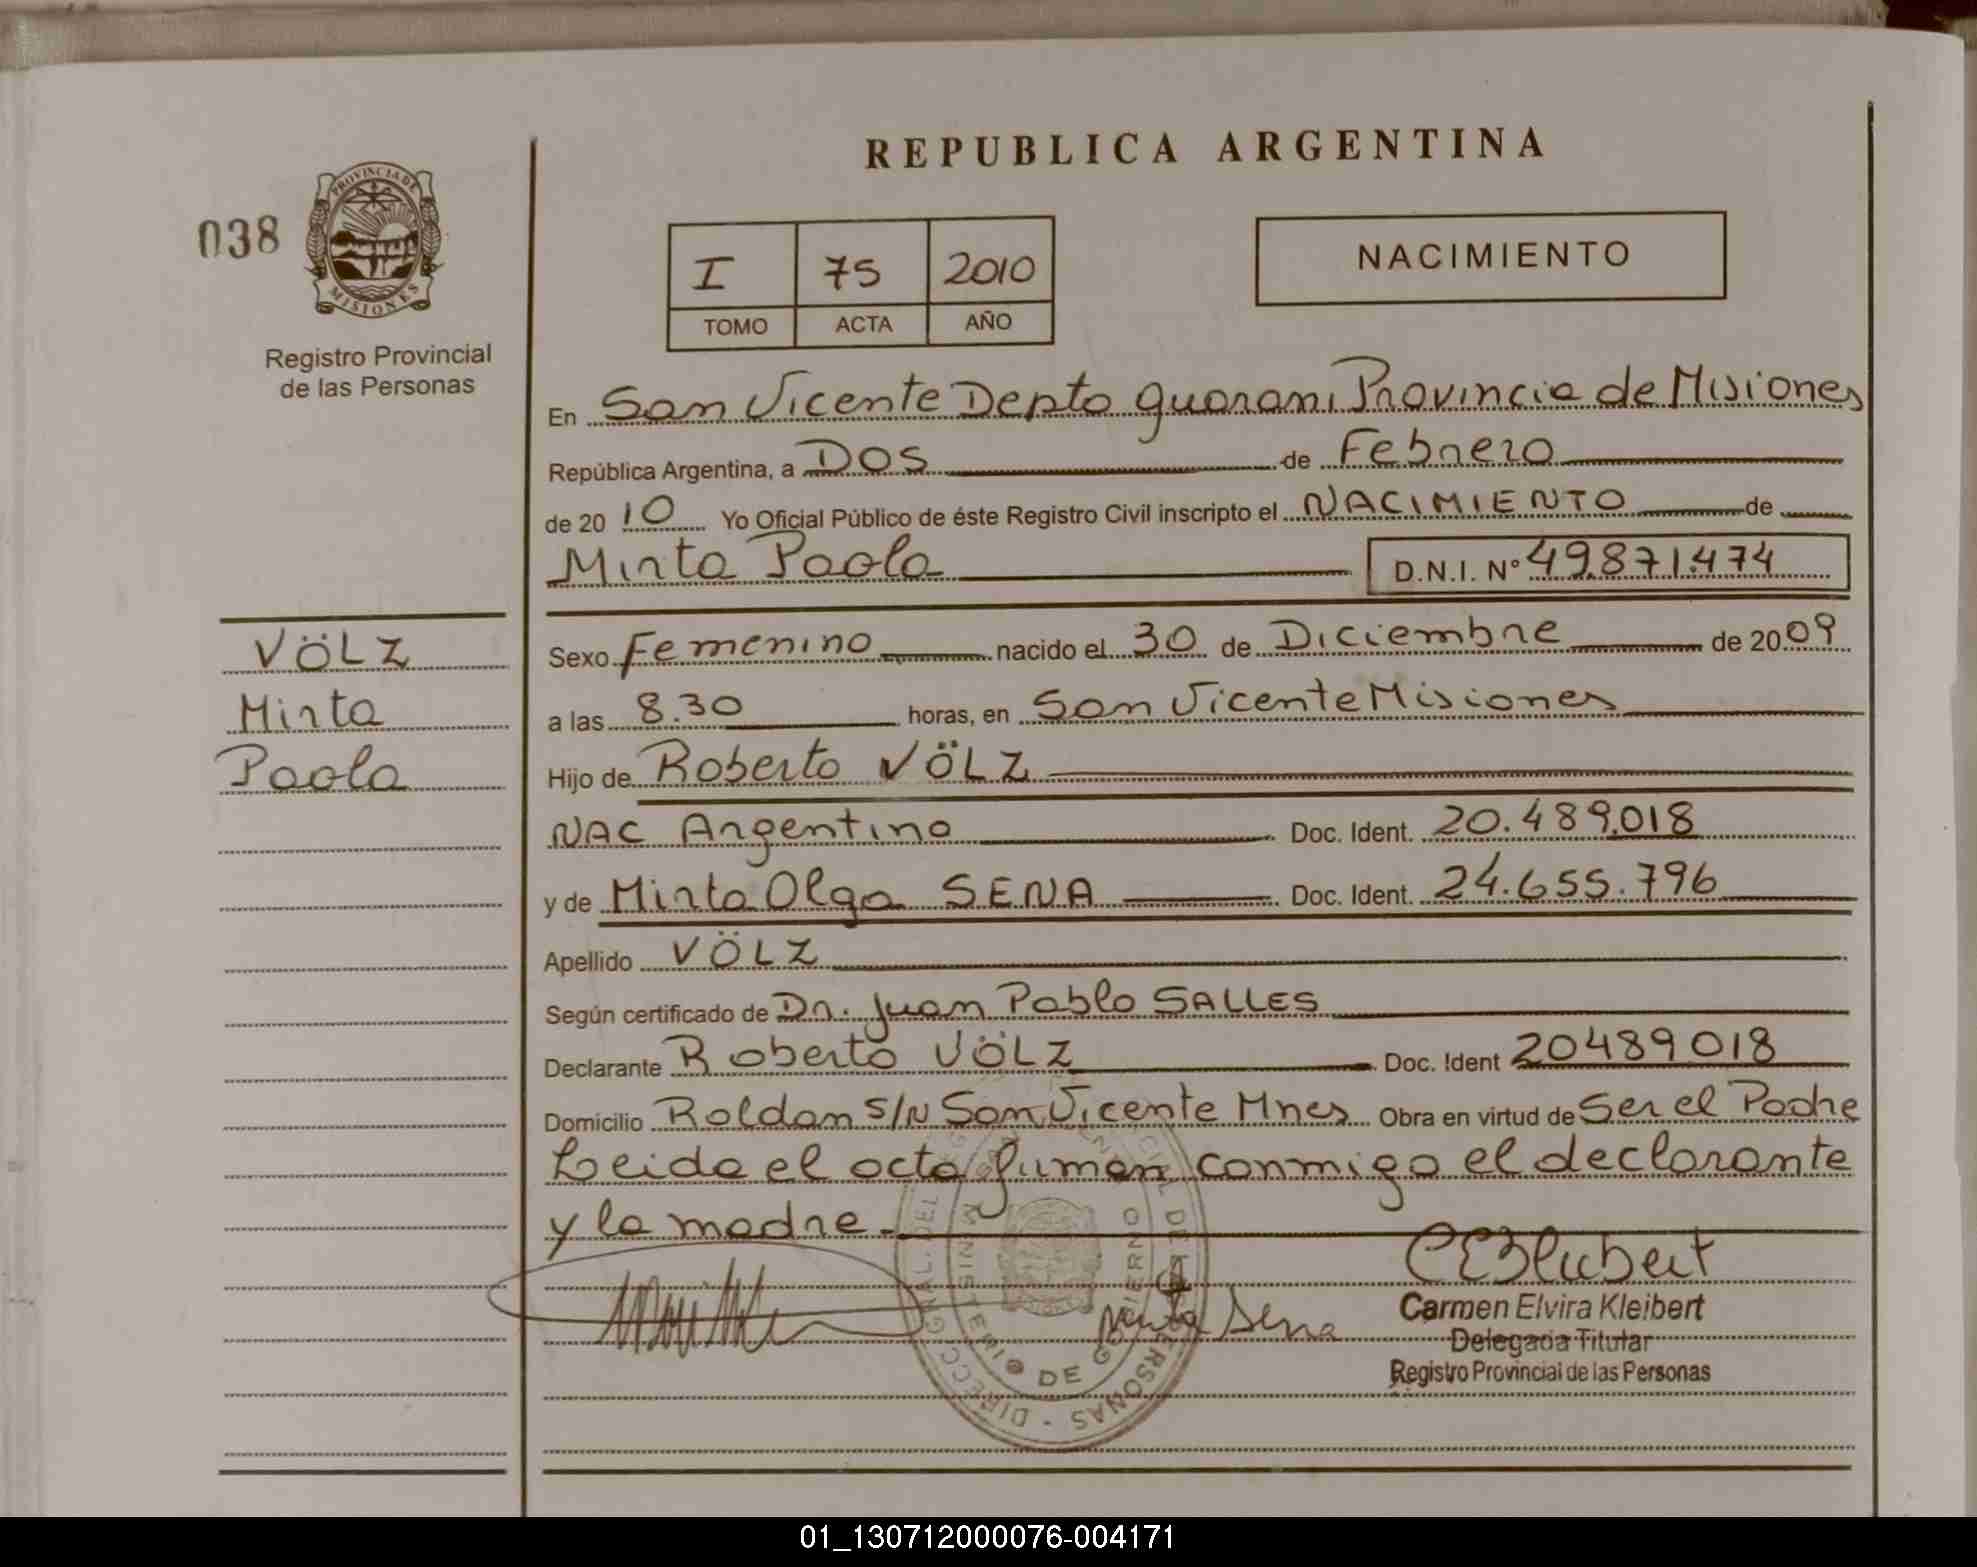 REPUBLICA ARGENTINA
038
PROVINCIA DE
MISIONES
Registro Provincial
de las Personas
I 75 2010
TOMO ACTA AÑO
NACIMIENTO
En San Vicente Depto guarani Provincia de Misiones
República Argentina, a DOS de Febrero
de 20 10 Yo Oficial Público de éste Registro Civil inscripto el NACIMIENTO de
Mirta Paola D.N.I. Nº 49.871.474
VÖLZ
Mirta
Paola
Sexo Femenino nacido el 30 de Diciembre de 20 09
a las 8.30 horas, en San Vicente Misiones
Hijo de Roberto VÖLZ
NAC Argentino Doc. Ident. 20.489.018
y de Mirta Olga SENA Doc. Ident. 24.655.796
Apellido VÖLZ
Según certificado de Dr. Juan Pablo SALLES
Declarante Roberto VÖLZ Doc. Ident 20489018
Domicilio Roldan S/N San Vicente Mnes Obra en virtud de Ser el Padre
Leida el acta firman conmigo el declarante
y la madre.
Mirta Sena
CEKleibert
Carmen Elvira Kleibert
Delegada Titular
Registro Provincial de las Personas
MINISTERIO DE GOBIERNO
01_130712000076-004171